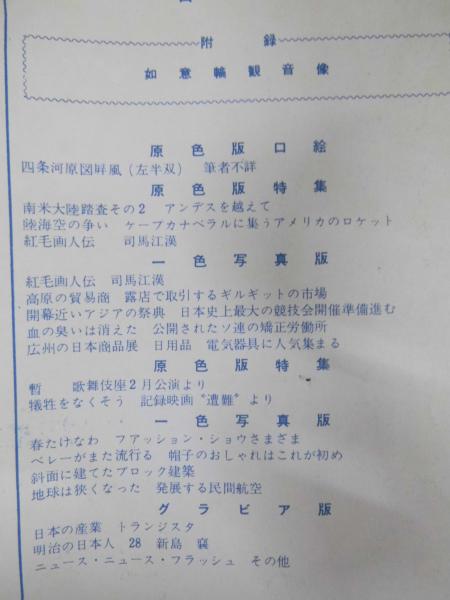 附録
如意輪観音像
原色版口絵
四条河原図屛風（左半双） 筆者不詳
原色版特集
南米大陸踏査その2 アンデスを越えて
陸海空の争い ケープカナベラルに集うアメリカのロケット
紅毛画人伝 司馬江漢
一色写真版
紅毛画人伝 司馬江漢
高原の貿易商 露店で取引するギルギットの市場
開幕近いアジアの祭典 日本史上最大の競技会開催準備進む
血の臭いは消えた 公開されたソ連の矯正労働所
広州の日本商品展 日用品 電気器具に人気集まる
原色版特集
暫 歌舞伎座2月公演より
犠牲をなくそう 記録映画〝遭難〟より
一色写真版
春たけなわ フアッション・ショウさまざま
ベレーがまた流行る 帽子のおしゃれはこれが初め
斜面に建てたブロック建築
地球は狭くなった 発展する民間航空
グラビア版
日本の産業 トランジスタ
明治の日本人 28 新島 襄
ニュース・ニュース・フラッシュ その他